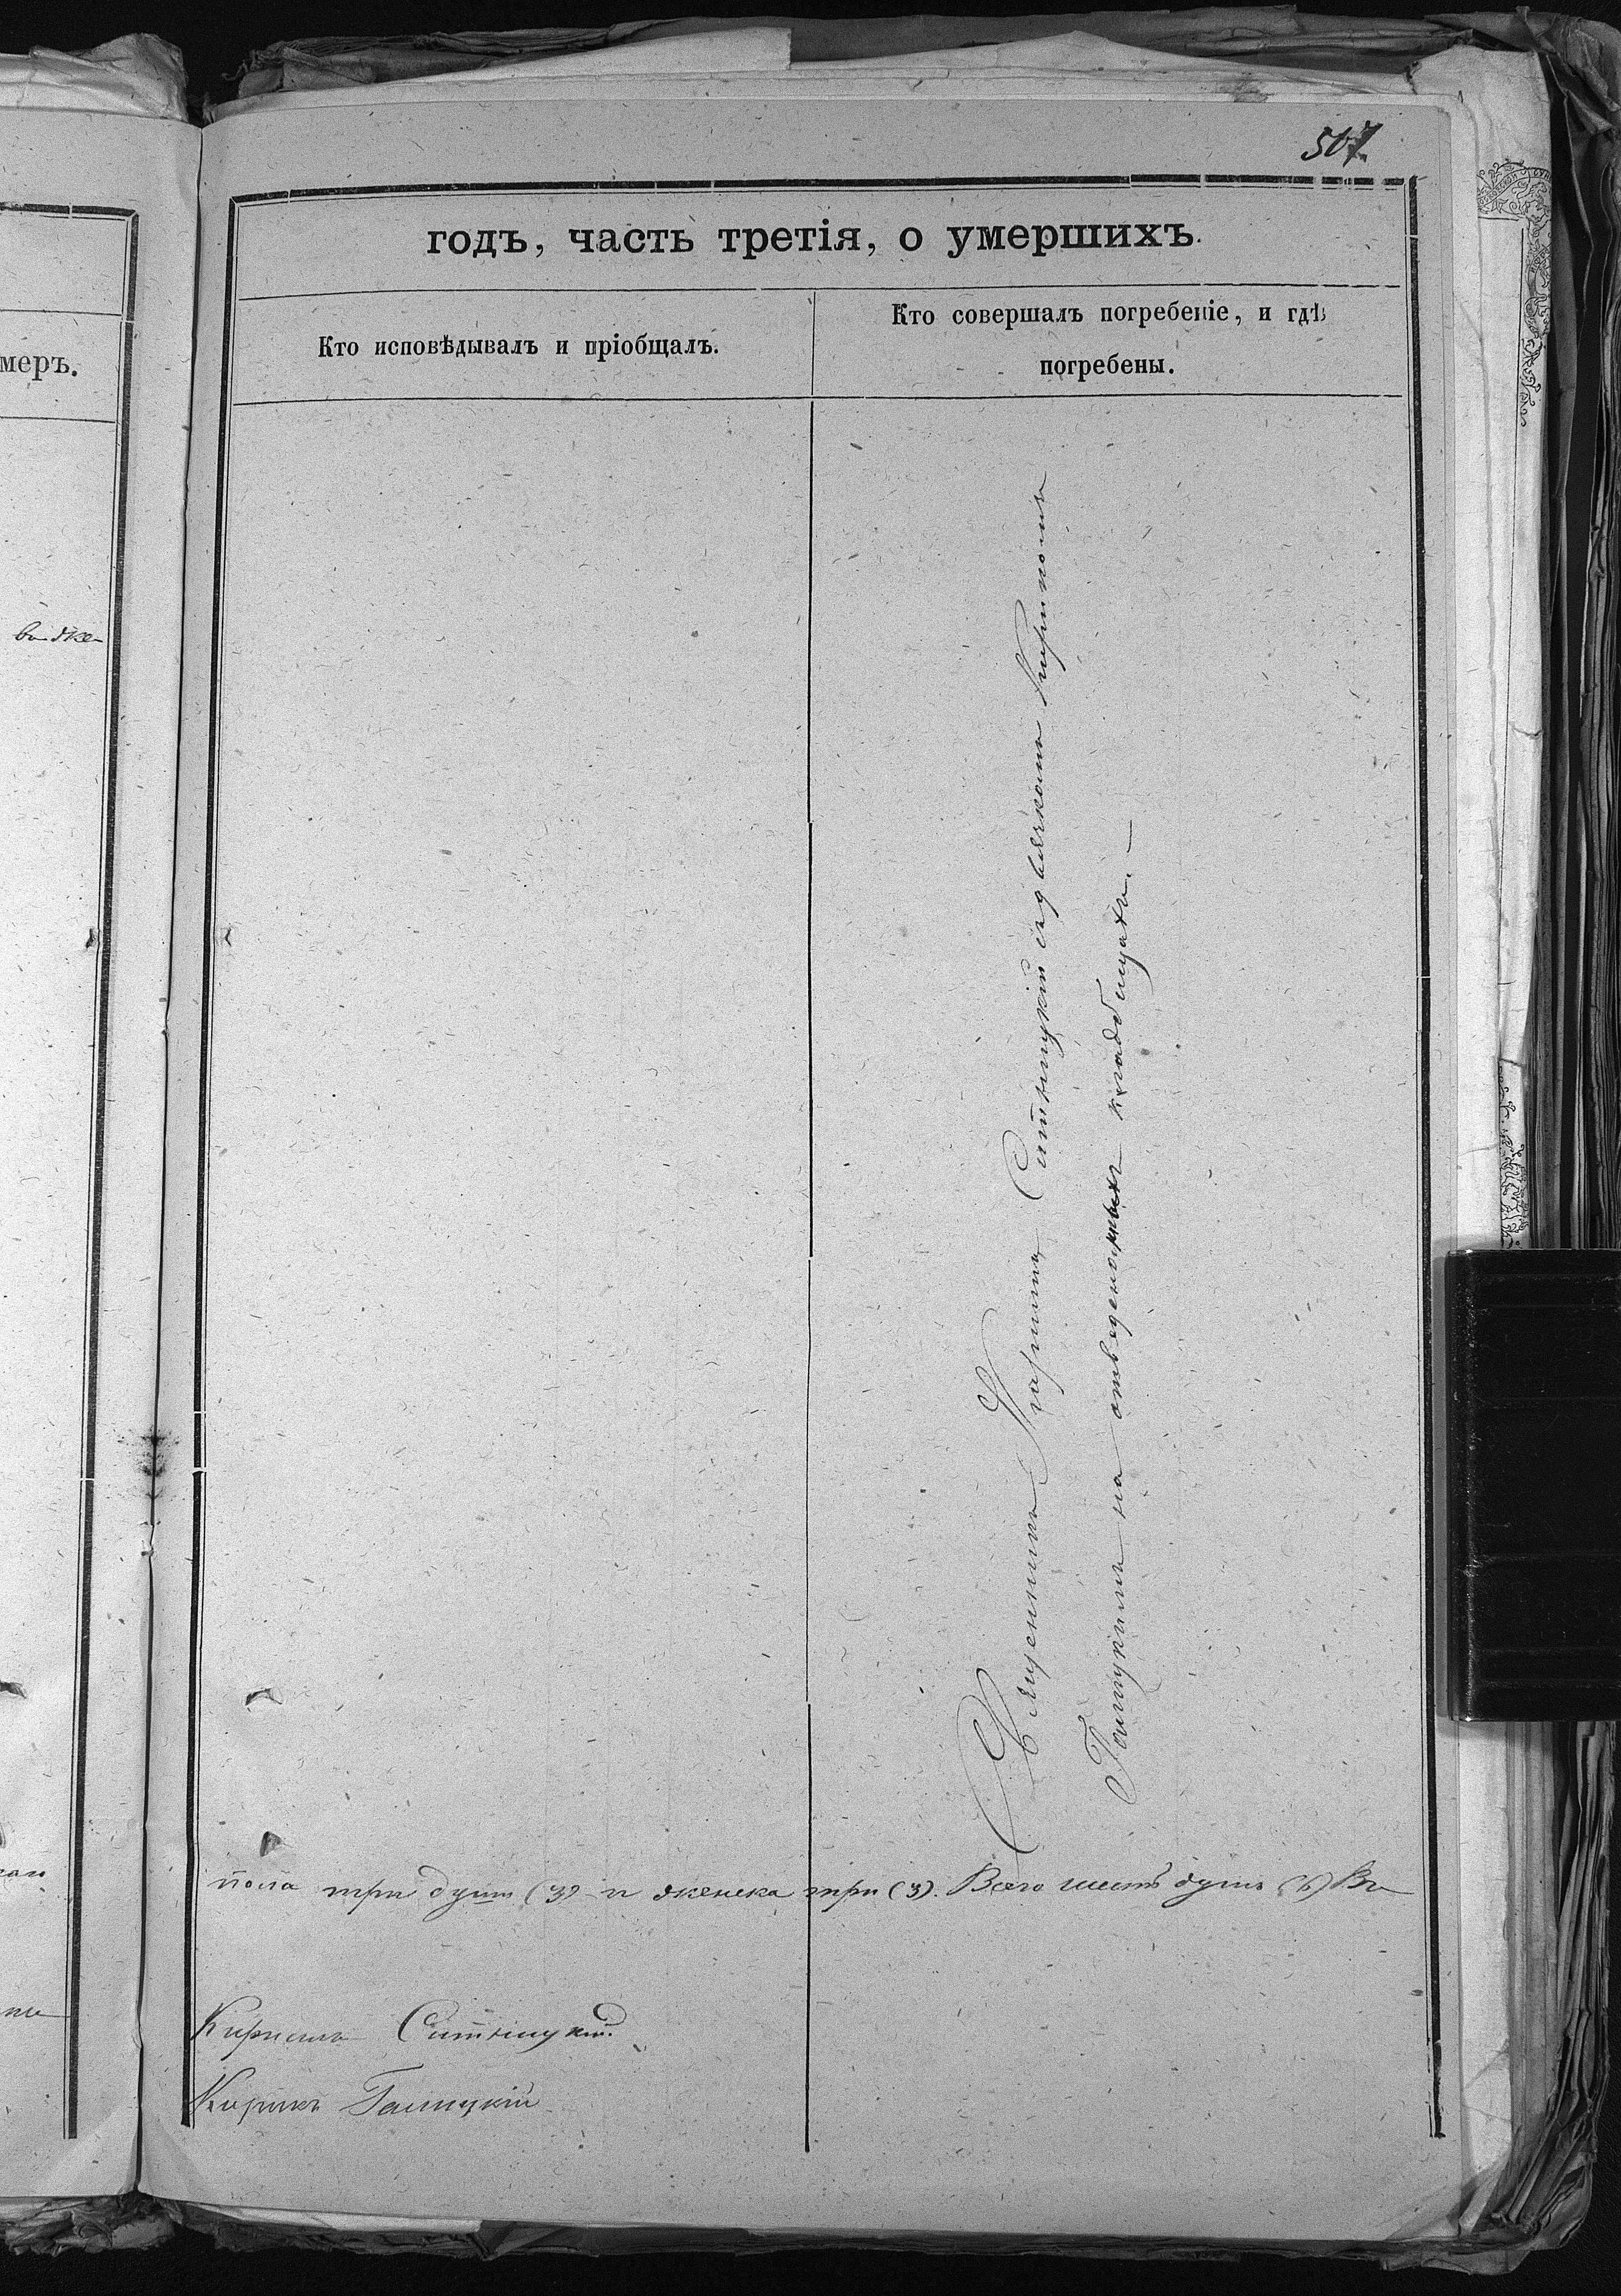 507
годъ, часть третія, о умершихъ.
меръ.
Кто исповѣдывалъ и пріобщалъ.
Кто совершалъ погребеніе, и гдѣ
погребены.
Священникъ Кириллъ Ситницкій съ дьячкомъ Кирикомъ
Галицкимъ на отведенныхъ кладбищахъ.—
пола три души (3) и женска три (3). Всего шесть душъ (6) Въ
Кириллъ Ситницкій.
Кирикъ Галицкій